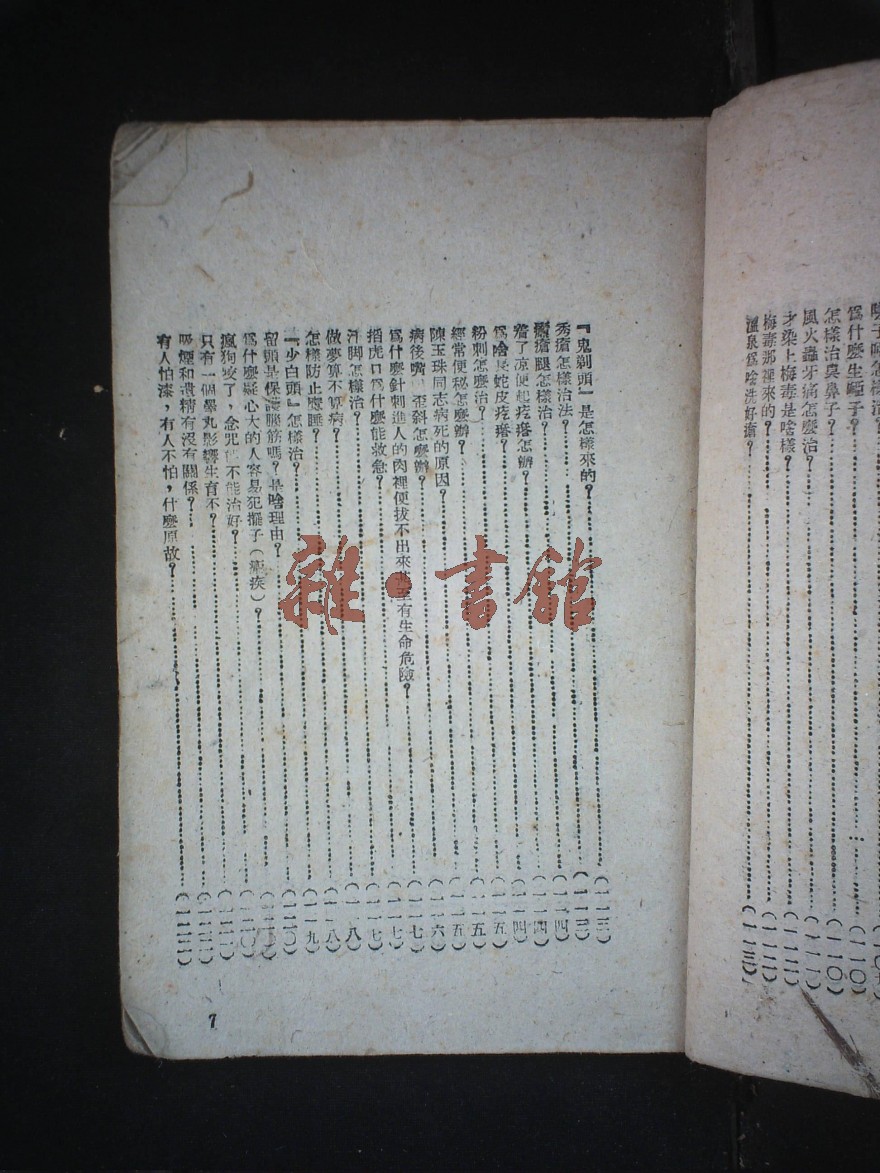 爲什麽生啞子？……（一一〇）
怎樣治臭鼻子？……（一一〇）
風火蟲牙痛怎麽治？……
才染上梅毒是啥樣
梅毒那裡來的？……
溫泉爲啥洗好瘡？……
『鬼剃頭』是怎樣來的？……（一一三）
秃瘡怎樣治法？……
臁瘡腿怎樣治？……（一一四）
着了凉便起疙瘩怎辦？……（一一四）
爲啥長蛇皮疙瘩？……（一一五）
粉刺怎麽治？……（一一五）
經常便秘怎麽辦？……（一一五）
陳玉珠同志病死的原因？……（一一六）
病後嘴 歪斜怎麽辦？……（一一七）
爲什麽針刺進人的肉裡便拔不出來甚至有生命危險？……（一一七）
掐虎口爲什麽能救急？……（一一七）
汗脚怎樣治？……（一一八）
做夢算不算病？……（一一八）
怎樣防止磕睡？……（一一九）
『少白頭』怎樣治？……（一二〇）
留頭是保護腦筋嗎？是啥理由？……
爲什麽疑心大的人容易犯擺子（瘧疾）？……（一二〇）
瘋狗咬了，念咒 不能治好？……
只有一個睾丸影響生育不？……
吸煙和遺精有沒有關係？……
有人怕漆，有人不怕，什麽原故？……
7
雜·書館